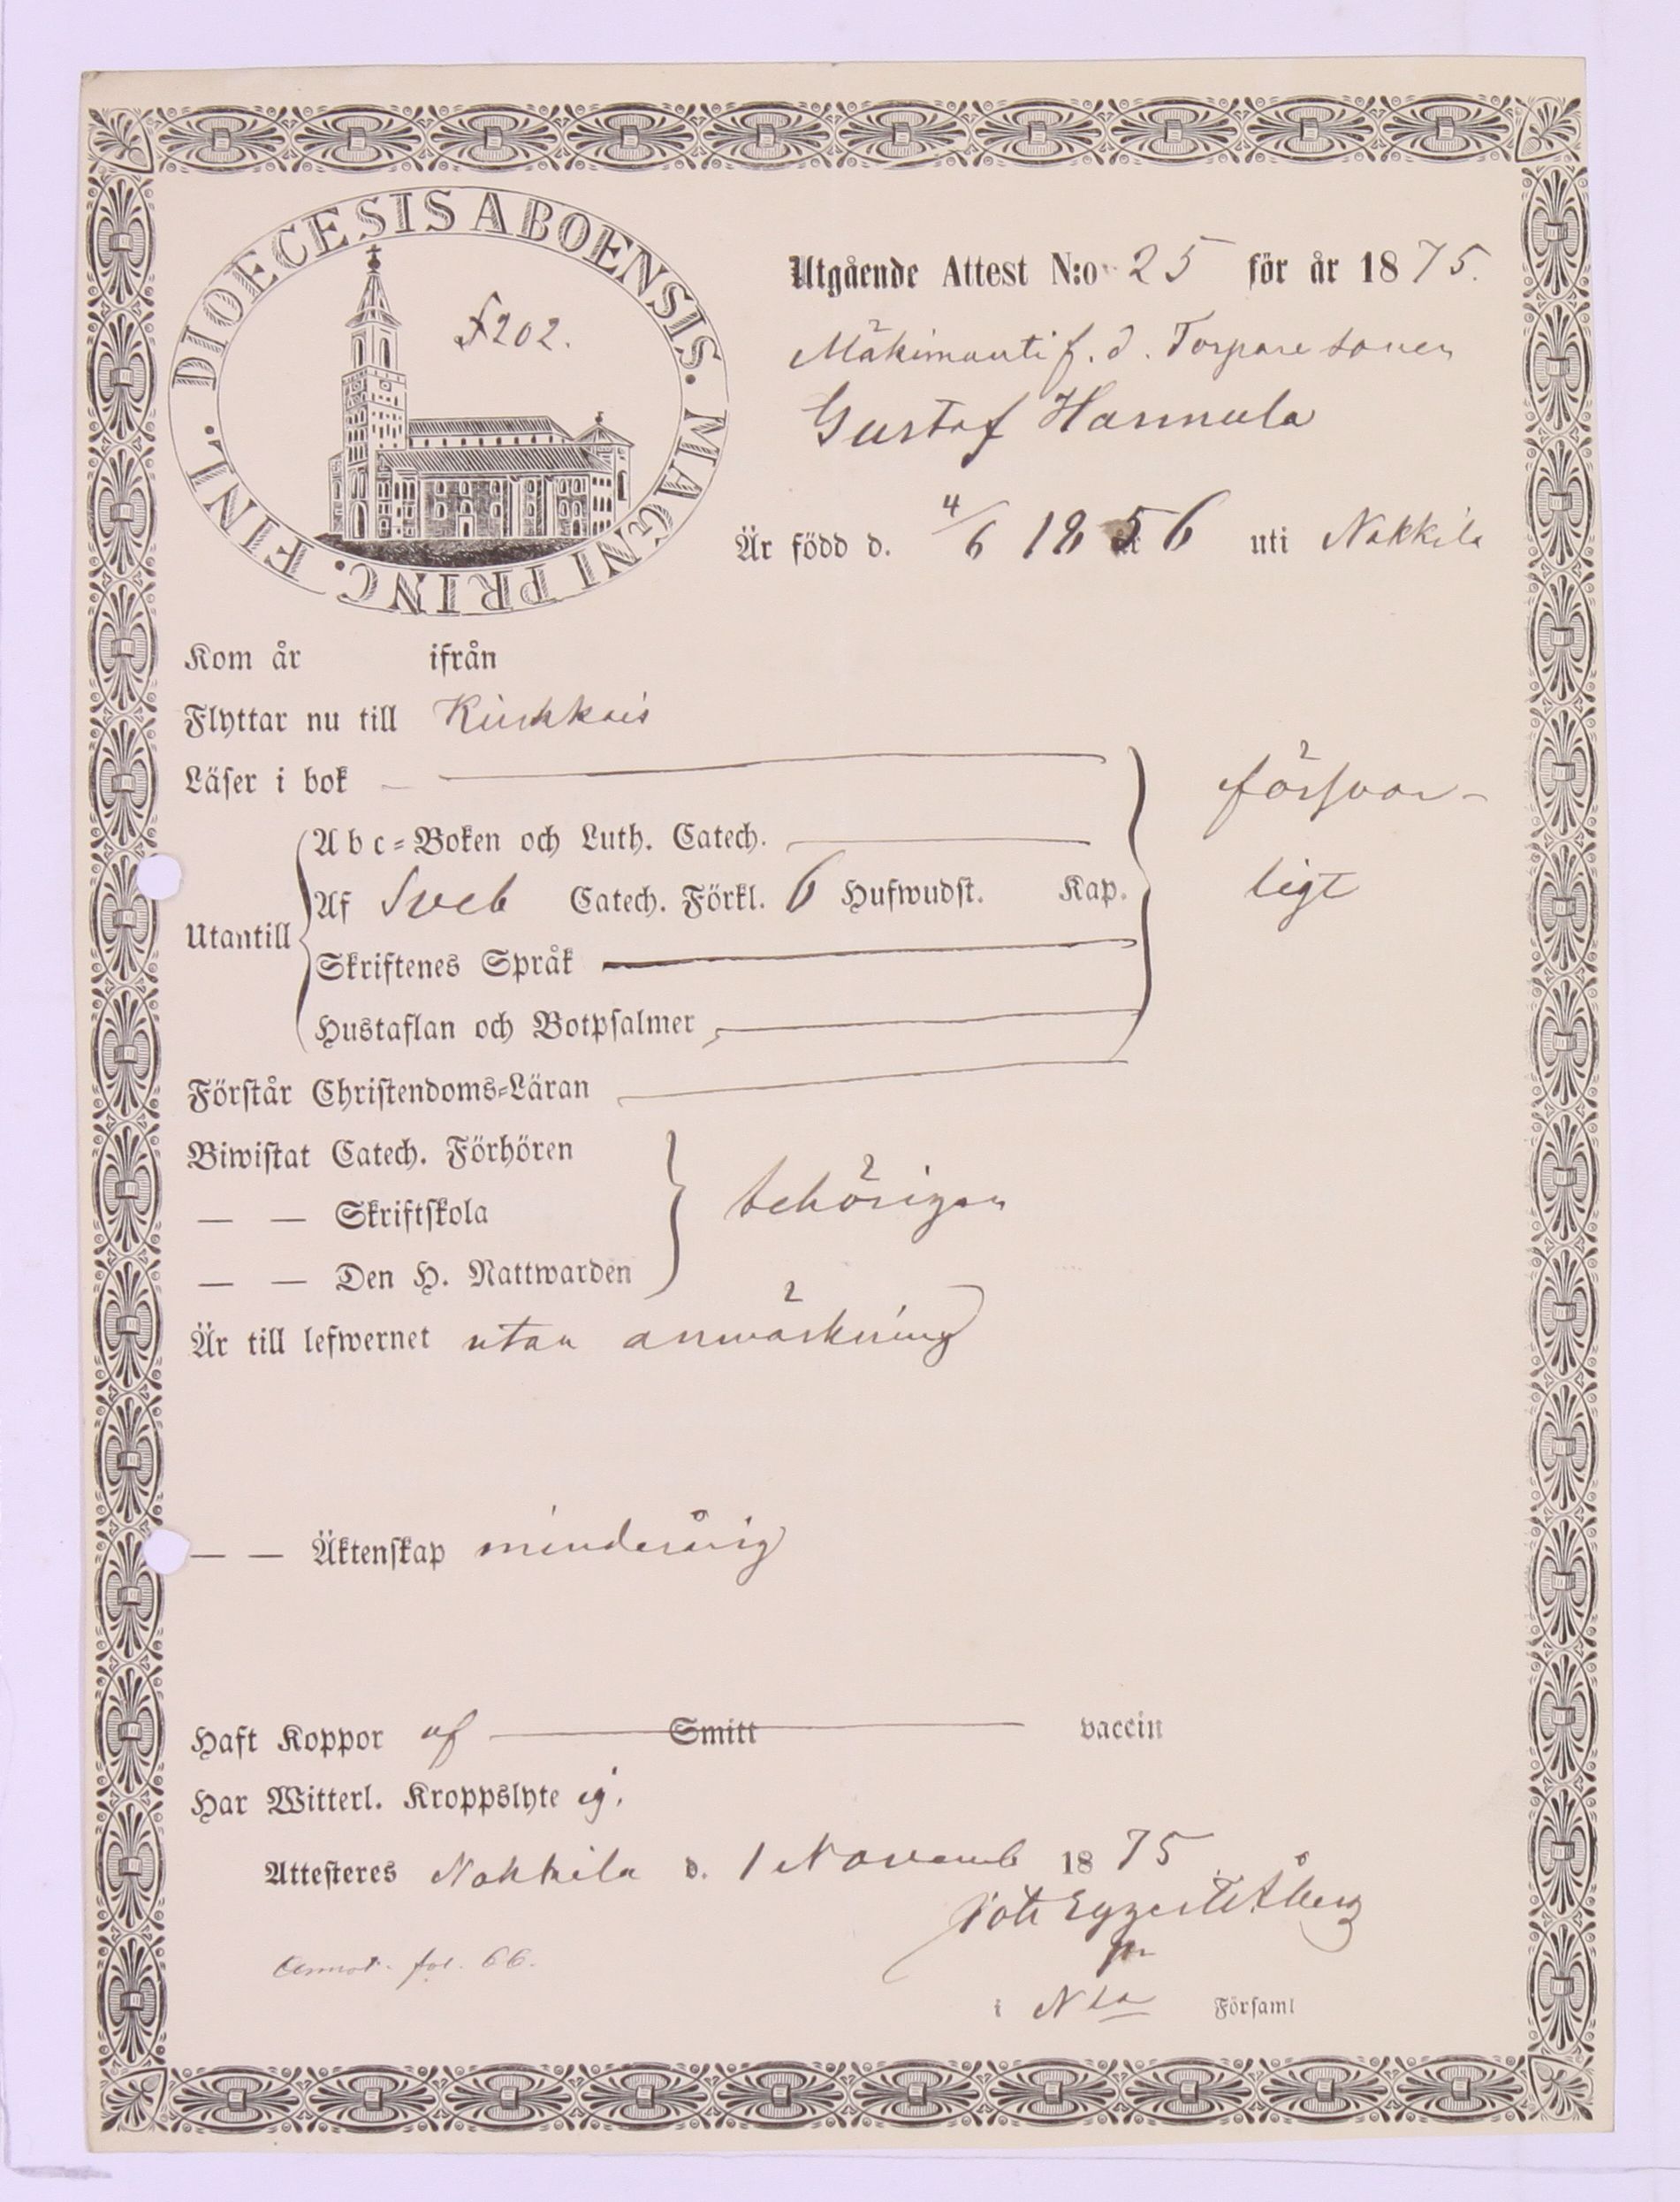 DIOECESIS ABOENSIS. MAGNI PRINC. FINL.
f 202.
Utgående Attest N:o 25 för år 1875.
f. d. Torpare sonen
Gustaf Hannula
Är född d. 4/6 1856 uti Nakkila
Kom år ifrån
Flyttar nu till
Läser i bok
försvar-
Abc-Boken och Luth. Catech.
Utantill
Af Sveb Catech. Förkl. 6 Hufwudst. Kap.
ligt
Skriftenes Språk
Hustaflan och Botpsalmer
Förstår Christendoms-Läran
Biwistat Catech. Förhören
— — Skriftskola
behörigen
— — Den H. Nattwarden
Är till lefwernet utan anmärkning
— — Äktenskap minderårig
Haft Koppor af Smitt vaccin
Har Witterl. Kroppslyte ej.
Attesteres Nakkila d. 1 Novemb 1875
Annot. fol. 66.
i Nla Församl